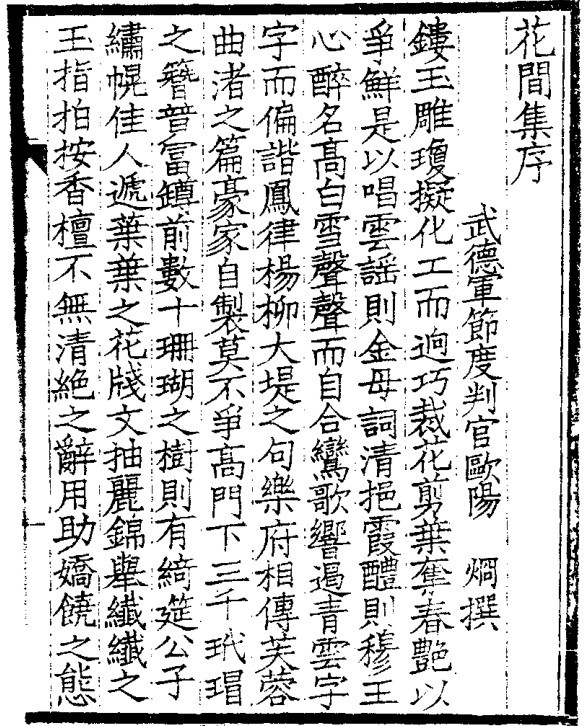 花間集序
武德軍節度判官歐陽 烱撰
鏤玉雕瓊擬化工而逈巧裁花剪葉奪春艷以
爭鮮是以唱雲謡則金母詞清挹霞醴則穆王
心醉名髙白雪聲聲而自合鸞歌響遏青雲字
字而偏諧鳳律楊柳大堤之句樂府相傳芙蓉
曲渚之篇豪家自製莫不爭髙門下三千玳瑁
之簪競富罇前數十珊瑚之樹則有綺筵公子
繡幌佳人遞葉葉之花牋文抽麗錦舉纖纖之
玉指拍按香檀不無清絶之辭用助嬌饒之態